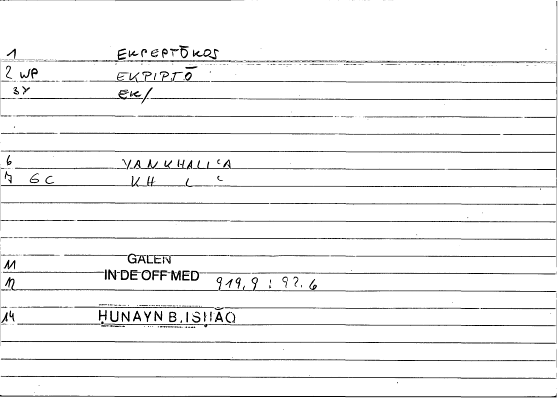 1 EKPEPTŌKOS
2 WP EKPIPTŌ
3 Y EK/
6 YANKHALIʿA
7 GC KH L ʿ
11 GALEN
12 IN DE OFF MED 919,9 : 92.6
14 HUNAYN B. ISḤĀQ